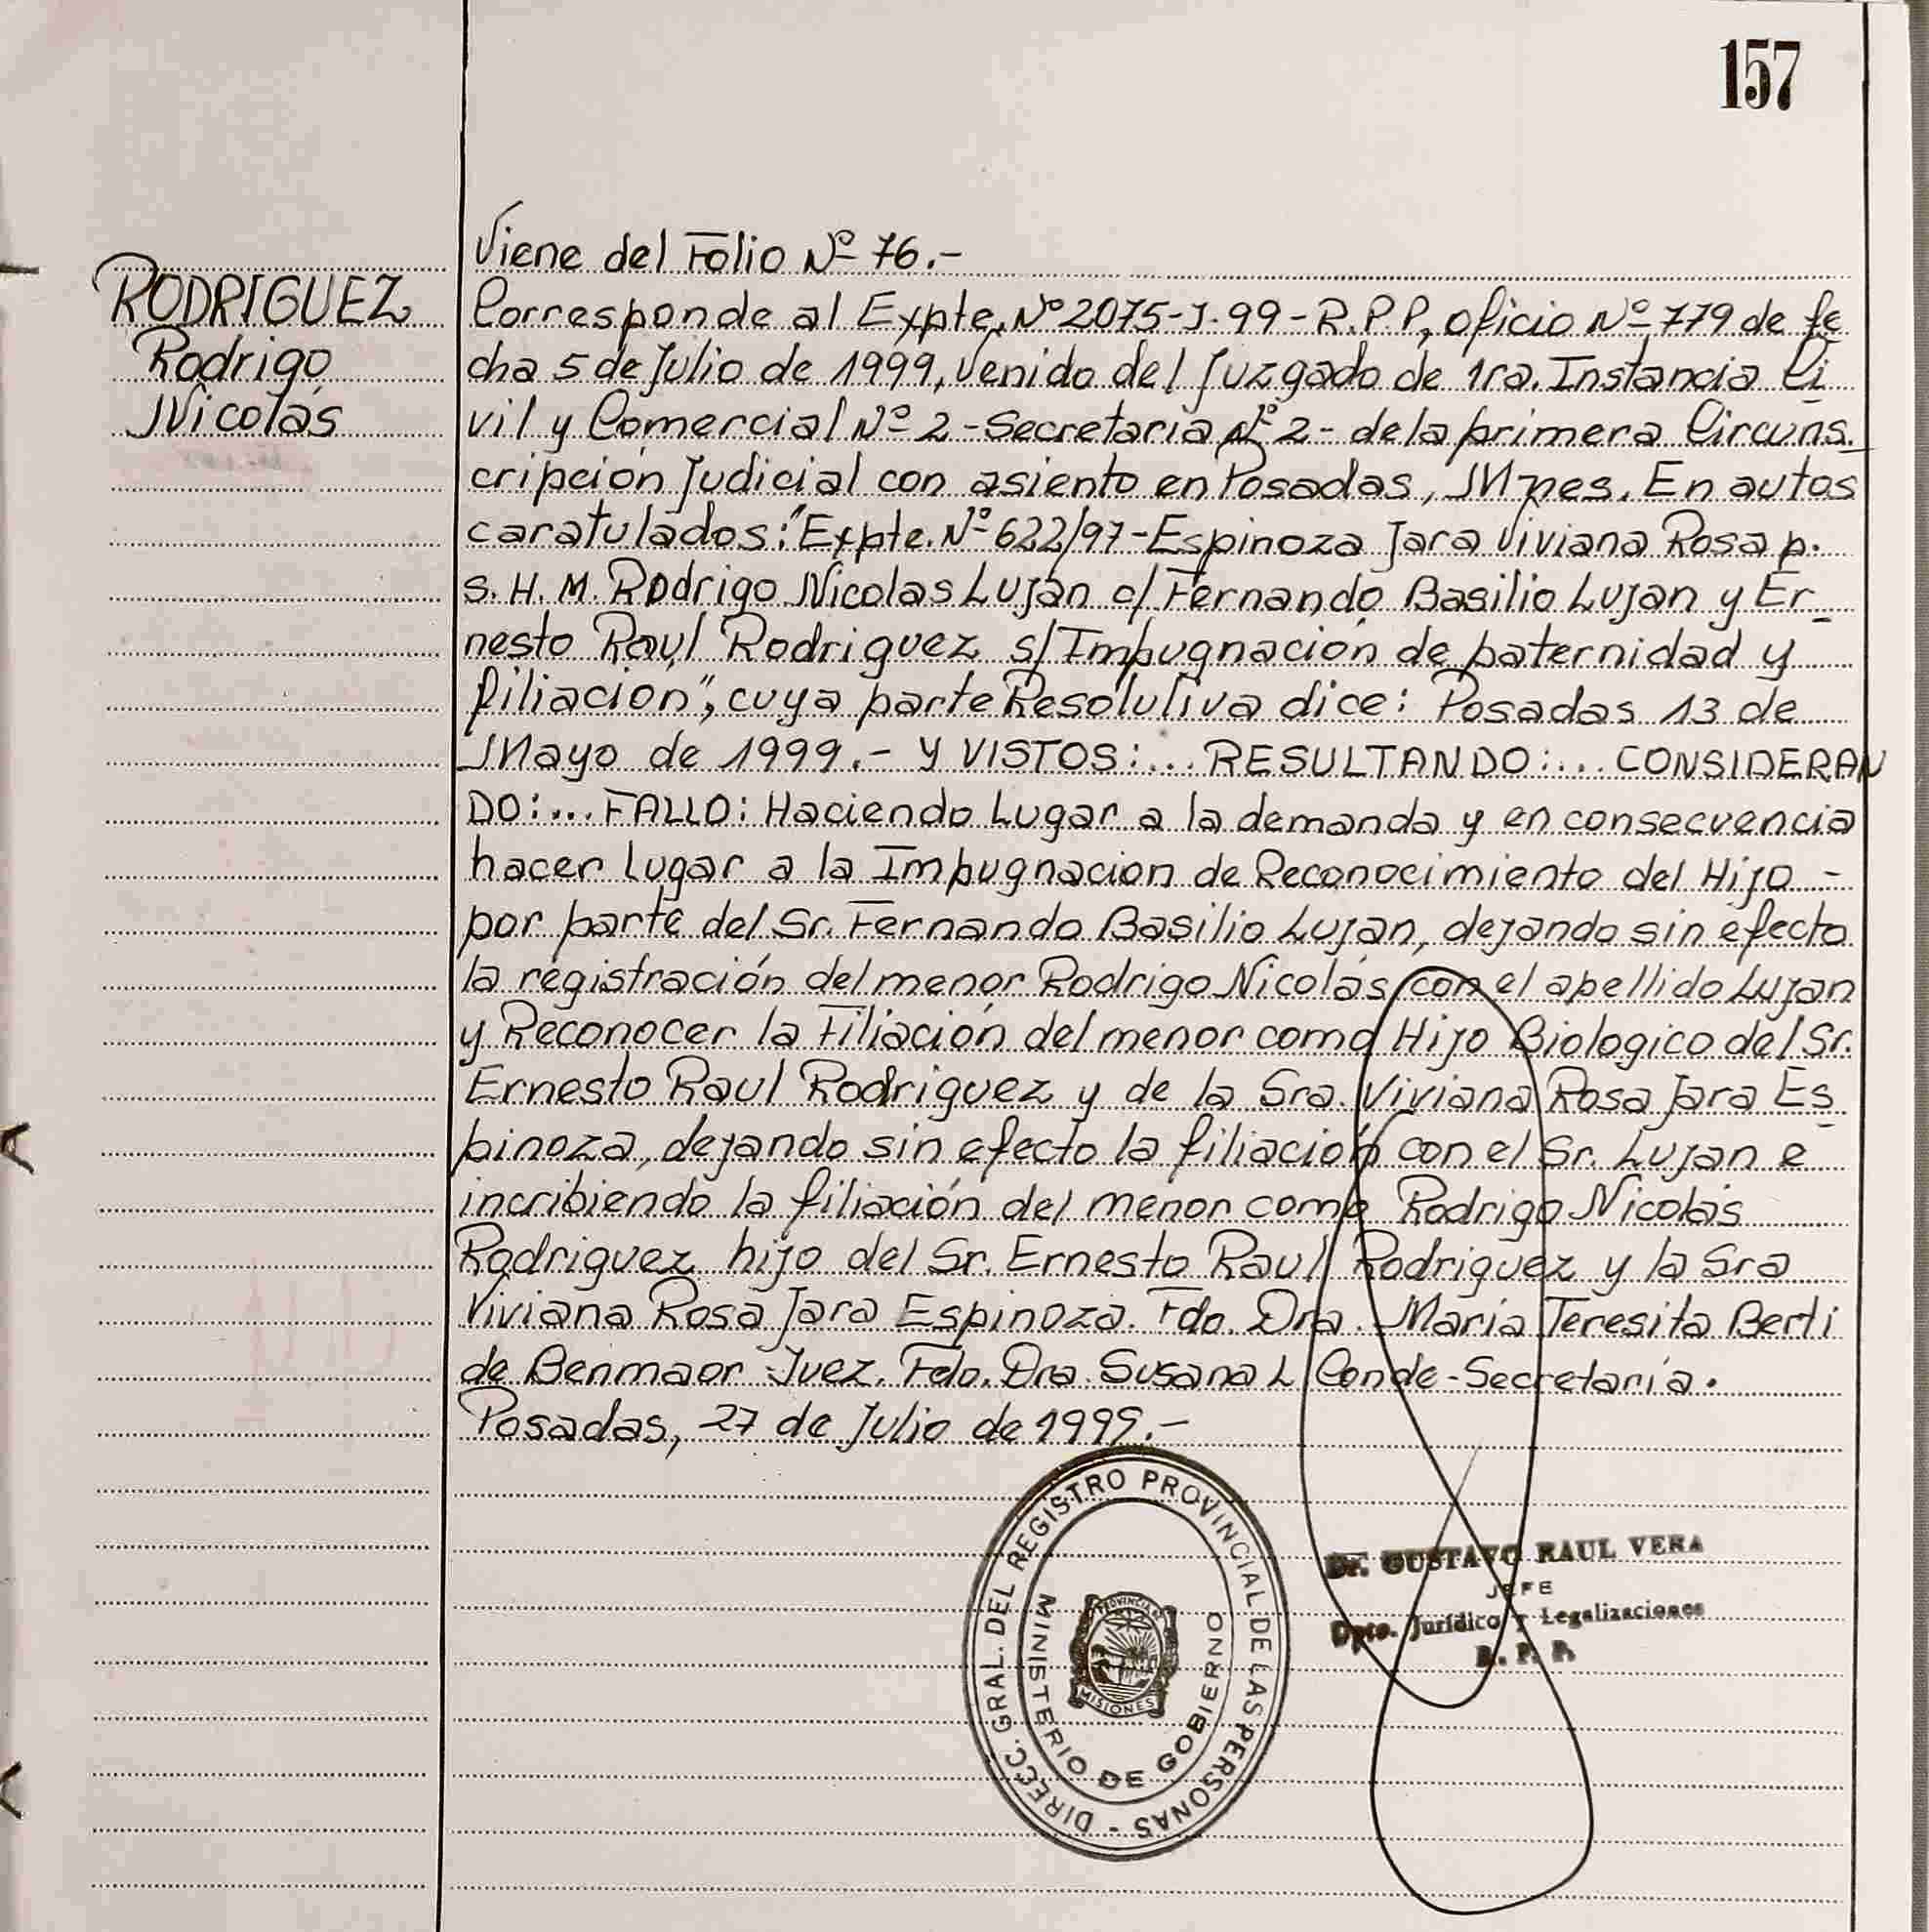 157
RODRIGUEZ
Rodrigo
Nicolás
Viene del Folio Nº 76.-
Corresponde al Expte. Nº 2075-J-99-R.P.P, oficio Nº 779 de fe
cha 5 de Julio de 1999, venido del Juzgado de 1ra. Instancia Ci
vil y Comercial Nº 2 - Secretaria Nº 2 - de la primera Circuns
cripción Judicial con asiento en Posadas, Mnes. En autos
caratulados: "Expte. Nº 622/97 - Espinoza Jara Viviana Rosa p.
S. H. M. Rodrigo Nicolas Luján c/ Fernando Basilio Lujan y Er_
nesto Raul Rodriguez s/ Impugnación de paternidad y
filiación", cuya parte Resolutiva dice: Posadas 13 de
Mayo de 1999.- Y VISTOS:... RESULTANDO:... CONSIDERAN
DO:... FALLO: Haciendo Lugar a la demanda y en consecuencia
hacer lugar a la Impugnacion de Reconocimiento del Hijo -
por parte del Sr. Fernando Basilio Lujan, dejando sin efecto
la registración del menor Rodrigo Nicolás con el apellido Lujan
y Reconocer la Filiación del menor como Hijo Biologico del Sr.
Ernesto Raul Rodriguez y de la Sra. Viviana Rosa Jara Es_
pinoza, dejando sin efecto la filiación con el Sr. Lujan e
incribiendo la filiación del menor como Rodrigo Nicolás
Rodriguez hijo del Sr. Ernesto Raul Rodriguez y la Sra
Viviana Rosa Jara Espinoza. Fdo. Dra. Maria Teresita Berti
de Benmaor - Juez. Fdo. Dra. Susana L Conde - Secretaría.
Posadas, 27 de Julio de 1999.-
DIRECC. GRAL. DEL REGISTRO PROVINCIAL DE LAS PERSONAS -
MINISTERIO DE GOBIERNO
PROVINCIA DE
MISIONES
Dr. GUSTAVO RAUL VERA
JEFE
Dpto. Jurídico y Legalizaciones
R. P. P.